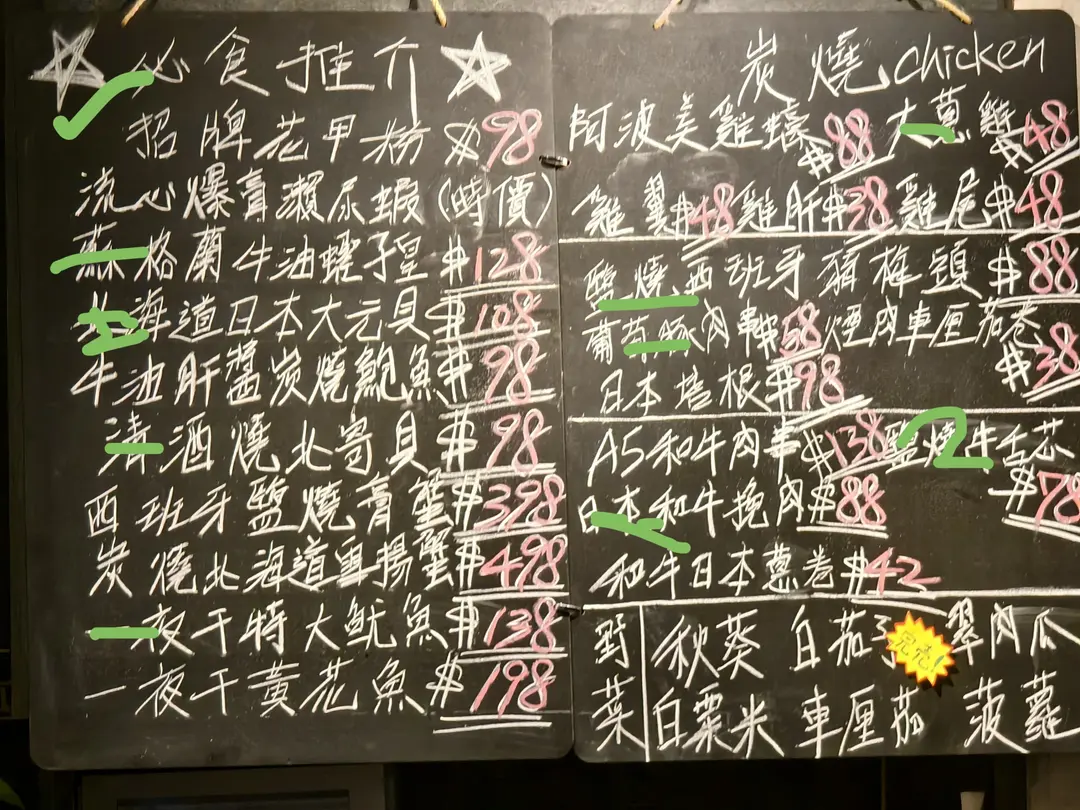 必食推介
招牌花甲粉 $98
流心爆膏瀨尿蝦(時價)
蘇格蘭牛油蟶子皇 $128
北海道日本大元貝 $108
牛油肝醬炭燒鮑魚 $98
清酒燒北寄貝 $98
西班牙鹽燒膏蟹 $398
炭燒北海道雪揚蟹 $498
一夜干特大魷魚 $138
一夜干黃花魚 $198
炭燒chicken
阿波美雞蠔 $88 大蔥雞 $48
雞翼 $48 雞肝 $38 雞尾 $48
鹽燒西班牙豬梅頭 $88
葡萄豚肉串 $58 煙肉車厘茄卷 $38
日本培根 $98
A5和牛肉串 $138 鹽燒牛舌芯 $78
日本和牛挽肉 $88
和牛日本蔥卷 $42
野菜
秋葵 白茄子 翠肉瓜
完売!
白粟米 車厘茄 菠蘿
2